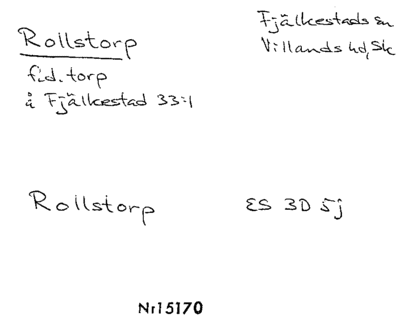 Rollstorp
f.d. torp
å Fjälkestad 33:1
Fjälkestads sn
Villands hd, Sk
Rollstorp
ES 3D 5j
Nr15170